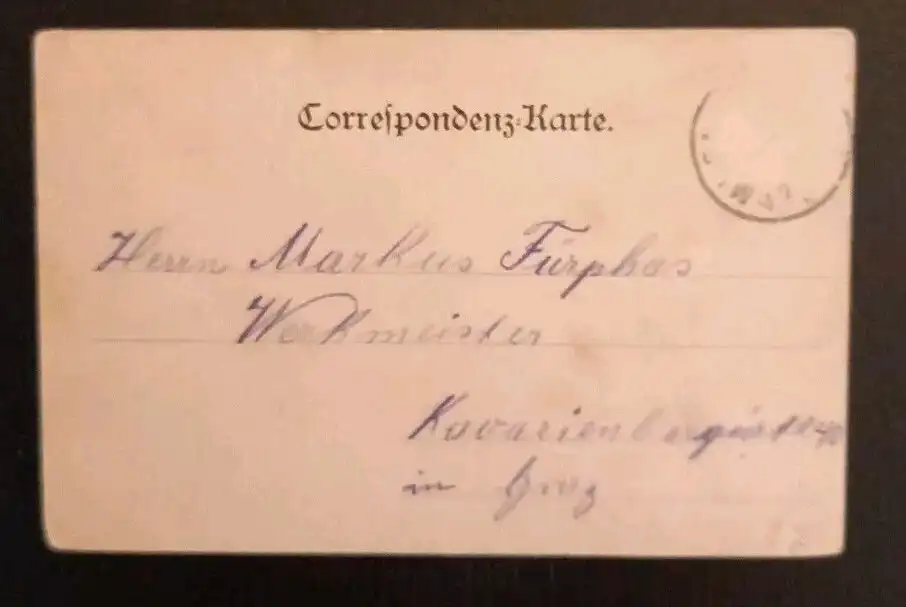 Correspondenz-Karte.
Herrn Markus Fürphas
Werkmeister
in Graz